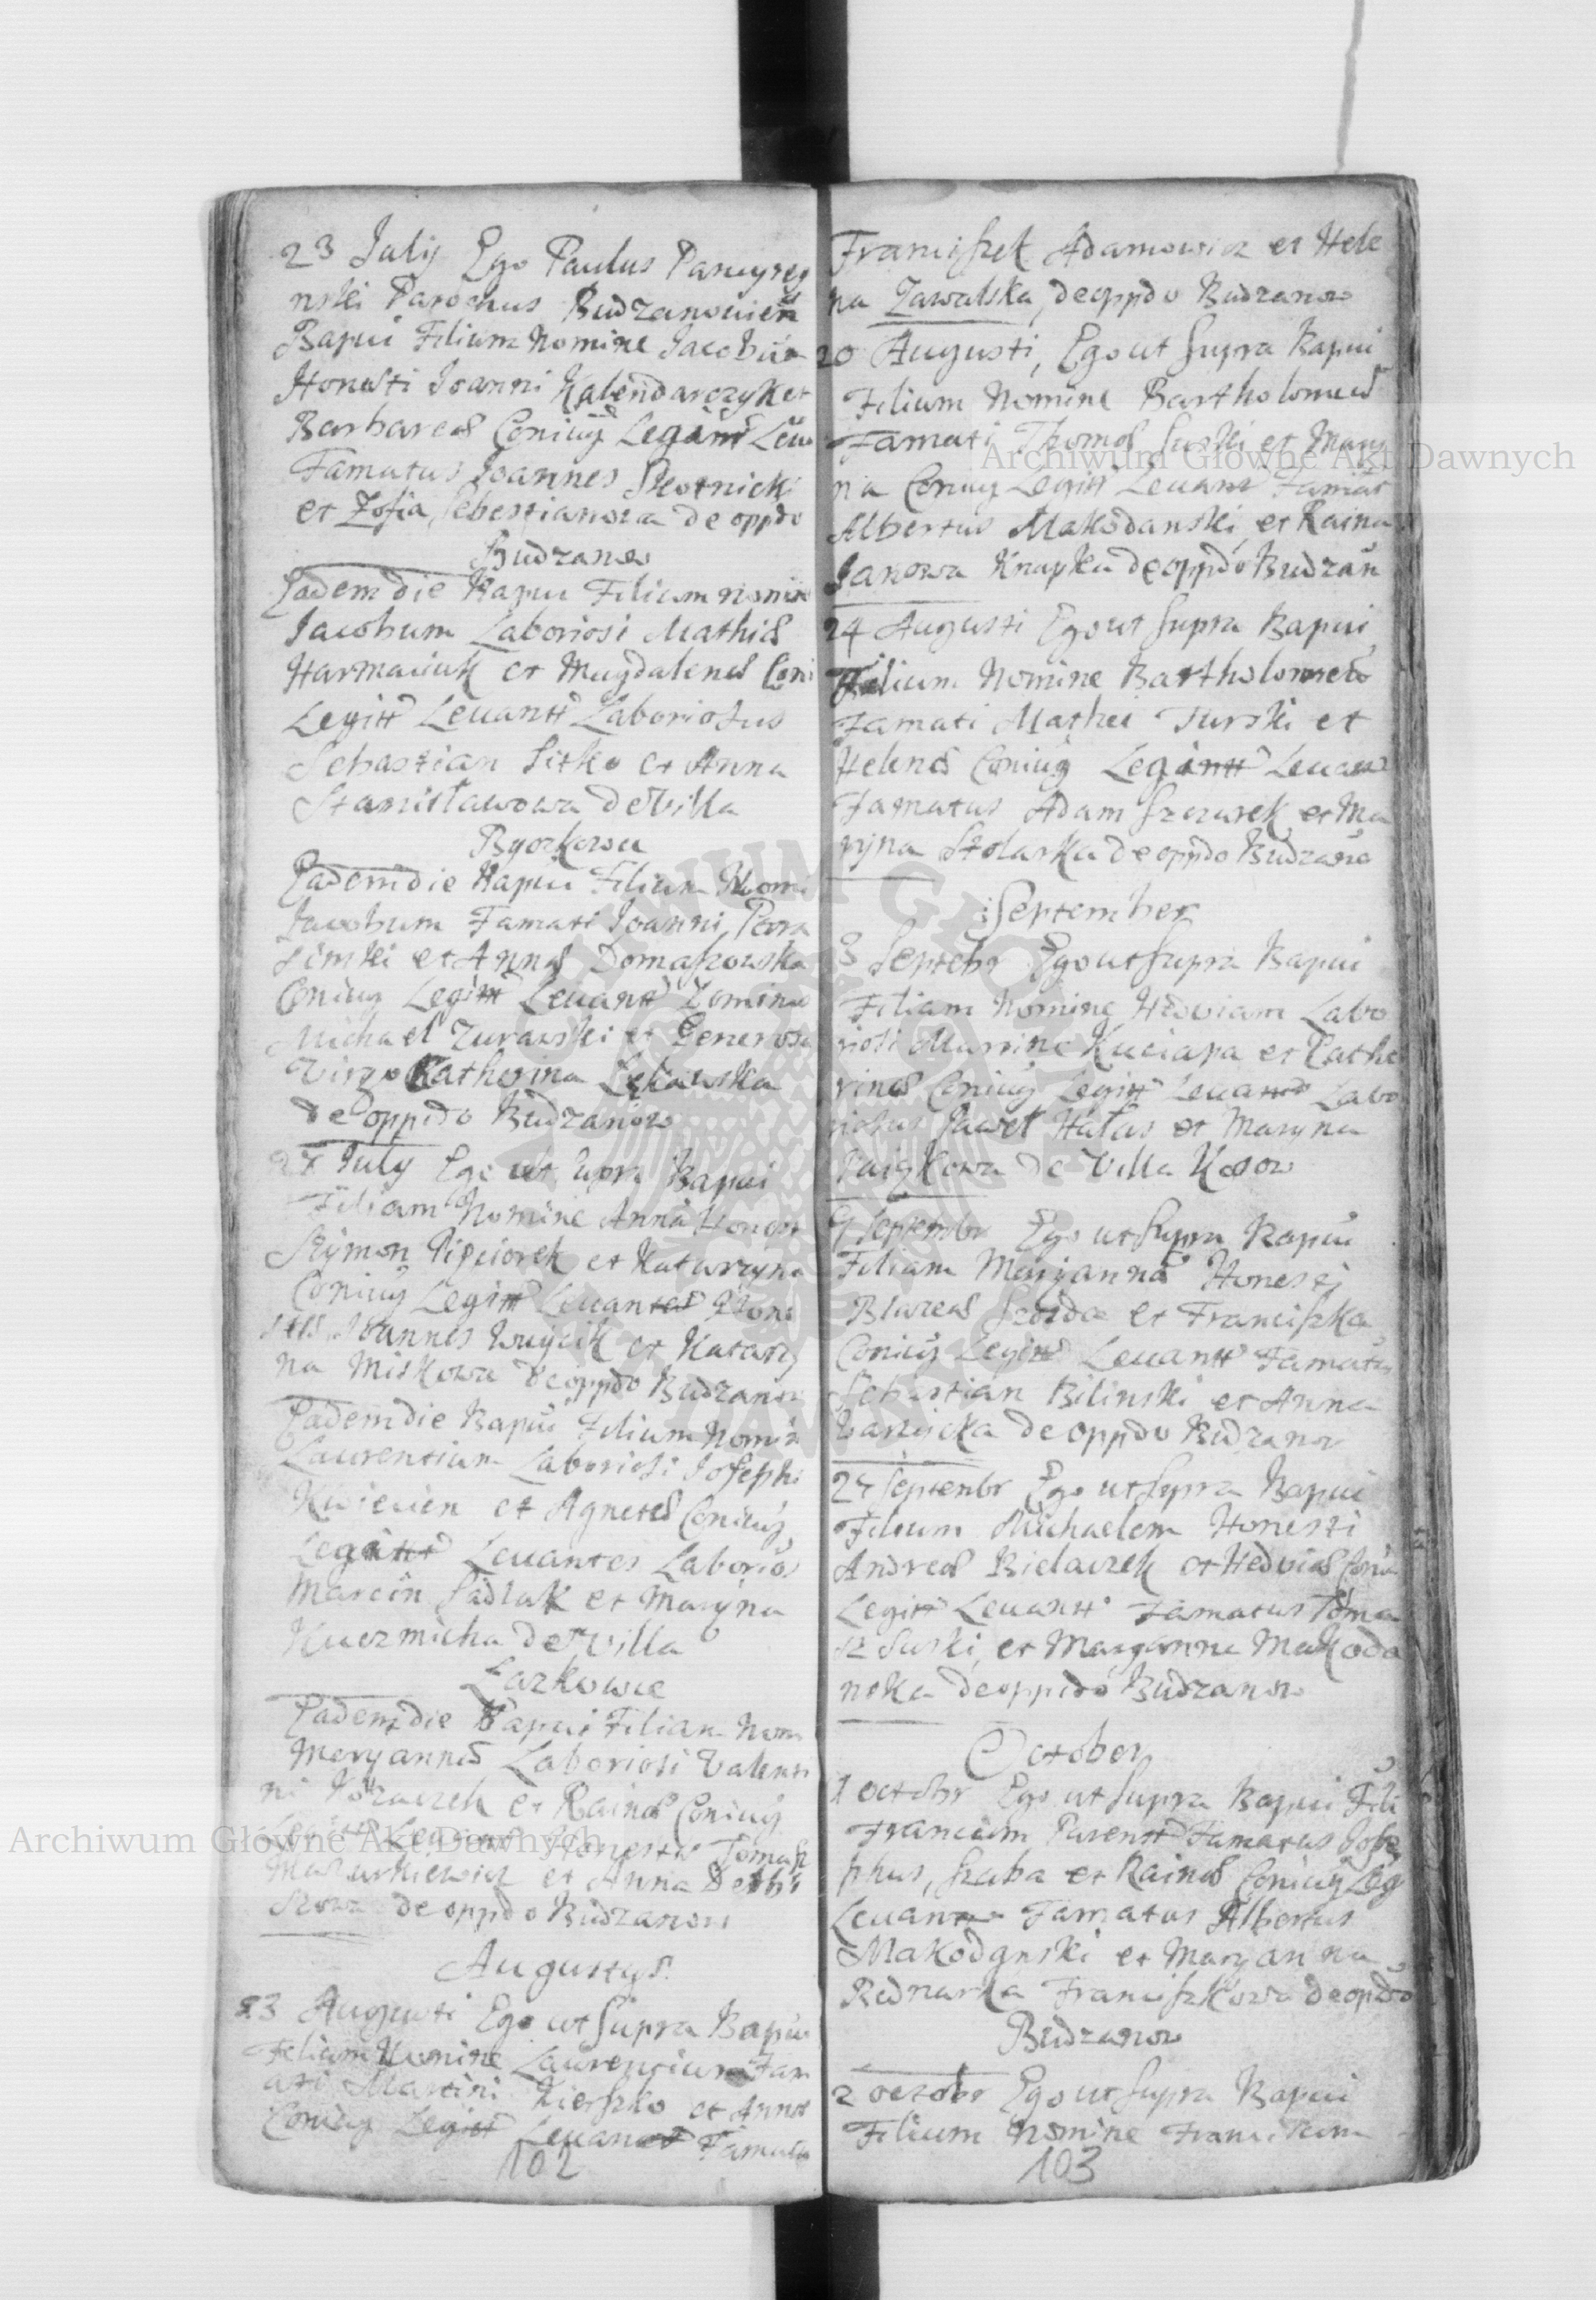 23 July Ego Paulus Panuyreg
nski Parochus Budzanouien
Bapui Filium Nomine Jacobum
Honesti Joanni Kalendarczyk et
Barbareas Coniug Legitt Leua
Famatus Joannes Słotnicki
et Zofia Sebestianowa de oppdo
Budzanow
Eadem die Bapui Filium nomin
Jacobum Laboriosi Mathias
Harmaciuk et Magdalenas Coni
Legitt Leuantt Laboriosus
Sebastian Sitko et Anna
Stanisławowa de Villa
Eadem die Bapui Filium Nom
Jacobum Famati Joanni
et Annas Domaszowska
Coniug Legitt Leuantt Dominus
Michael Zurawski et Generosa
Virgo Katherina
de oppido Budzanow
27 July Ego ut supra Bapui
Filiam Nomine Anna Honest
Szymon Pipciorek et Katarzyna
Coniug Legitt Leuantes Hone
stus Joannes Wuycik et Katarzy
na Miskowa de oppdo Budzanow
Eadem die Bapui Filium Nomin
Laurentium Laboriosi Josephi
Kwiecien et Agnetes Coniug
Legitt Leuantes Laborios
Marcin Sadlak et Maryna
Kuczmicha de Villa
Laskowce
Eadem die Bapui Filiam Nom
Maryannas Laboriosi Valenti
ni et Rainas Coniug
Legitt Leuantt Honestus Tomasz
Mazurkiewicz et Anna
de oppdo Budzanow
Augustus
3 Augusti Ego ut supra Bapui
Filium Nomine Laurencium Fam
ati Martini Kierszko et Annas
Coniug Legitt Leuantt Famatus
102
Franciszek Adamowicz et Hele
na Zawalska, de oppdo Budzanow
20 Augusti, Ego ut supra Bapui
Filium Nomine Bartholomeus
Famati Thomas Suski et Mary
na Coniug Legitt Leuant Famat
Albertus Makodanski, et Raina
Janowa Knapka de oppdo Budzan
24 Augusti Ego ut supra Bapui
Filium Nomine Bartholomeus
Famati Mathei Turski et
Helenas Coniug Legantt Leuan
Famatus Adam Szczurek et Ma
ryna Stolarka de oppdo Budzano
September
3 Septebr Ego ut supra Bapui
Filiam Nomine Hedviam Labo
riosi Marcine Kuciapa et Cathe
rinas Coniug Legitt Leuantt Labo
riosus Pawel Hałas et Maryna
de Villa Kosow
9 Septembr Ego ut supra Bapui
Filiam Maryannas Honesti
Blazeas Szozda et Franciszka
Coniug Legitt Leuantt Famatus
Sebestian Bilinski et Anna
de oppdo Budzanow
24 Septenbr Ego ut supra Bapui
Filium Michaelem Honesti
Andreas Bielaczek et Hedvias Coniu
Legitt Leuantt Famatus Toma
sz Suski, et Maryanna Makoda
nska de oppido Budzanow
October
1 octobr Ego ut supra Bapui Fili
Franciscum Parentt Famatus Jose
phus, Szaba et Rainas Coniug Leg
Leuantt Famatus Albertus
Makodanski et Maryanna
Bednarka Franciszkowa de oppdo
Budzanow
2 octobr Ego ut supra Bapui
Filium Nomine Franciscum
103
Archiwum Główne Akt Dawnych
Archiwum Główne Akt Dawnych